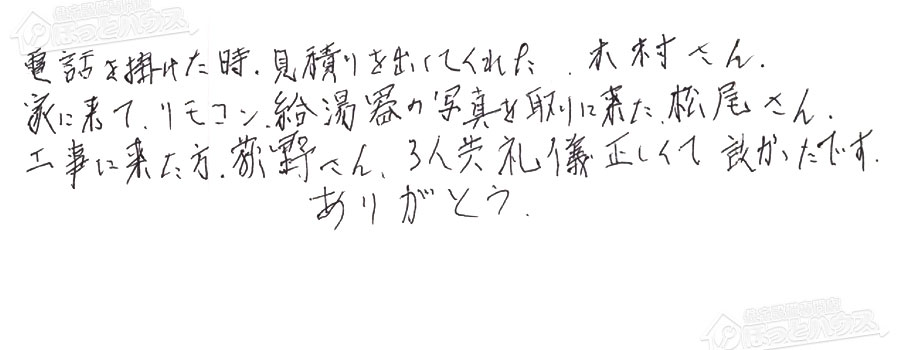 電話を掛けた時、見積りを出してくれた、木村さん、
家に来て、リモコン、給湯器の写真を取りに来た、松尾さん、
工事に来た方、荻野さん、3人共礼儀正しくて 良かったです。
ありがとう。
ほっとハウス
ほっとハウス